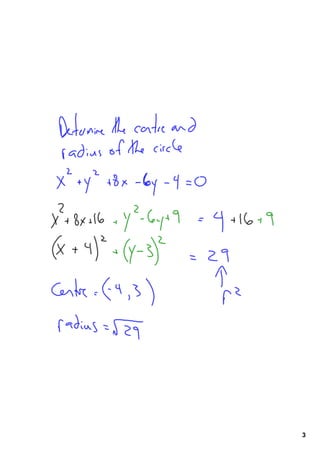 Determine the centre and
radius of the circle
x² + y² + 8x - 6y - 4 = 0
x² + 8x + 16 + y² - 6y + 9 = 4 + 16 + 9
(x + 4)² + (y - 3)² = 29
↑
Centre = (-4, 3) r²
radius = √29
3